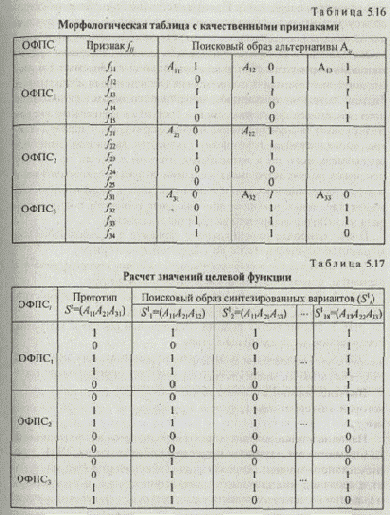 Таблица 5.16
Морфологическая таблица с качественными признаками
ОФПС Признак fij Поисковый образ альтернативы Aij
ОФПС1 f11 A11 1 A12 0 A13 1
f12 0 1 1
f13 1 1 1
f14 1 0 1
f15 0 0 1
ОФПС2 f21 A21 0 A22 1
f22 1 1
f23 1 1
f24 0 0
f25 0 0
ОФПС3 f31 A31 0 A32 1 A33 0
f32 0 1 1
f33 1 1 1
f34 1 1 0
Таблица 5.17
Расчет значений целевой функции
ОФПСi Прототип Поисковый образ синтезированных вариантов
1 1 1 ... 1
0 0 0 1
ОФПС1 1 1 1 1
1 1 1 1
0 0 0 1
0 0 0 1
1 1 1 1
ОФПС2 1 1 1 ... 1
0 0 0 0
0 0 0 0
0 1 0 0
ОФПС3 0 1 1 1
1 1 1 1
1 1 0 0